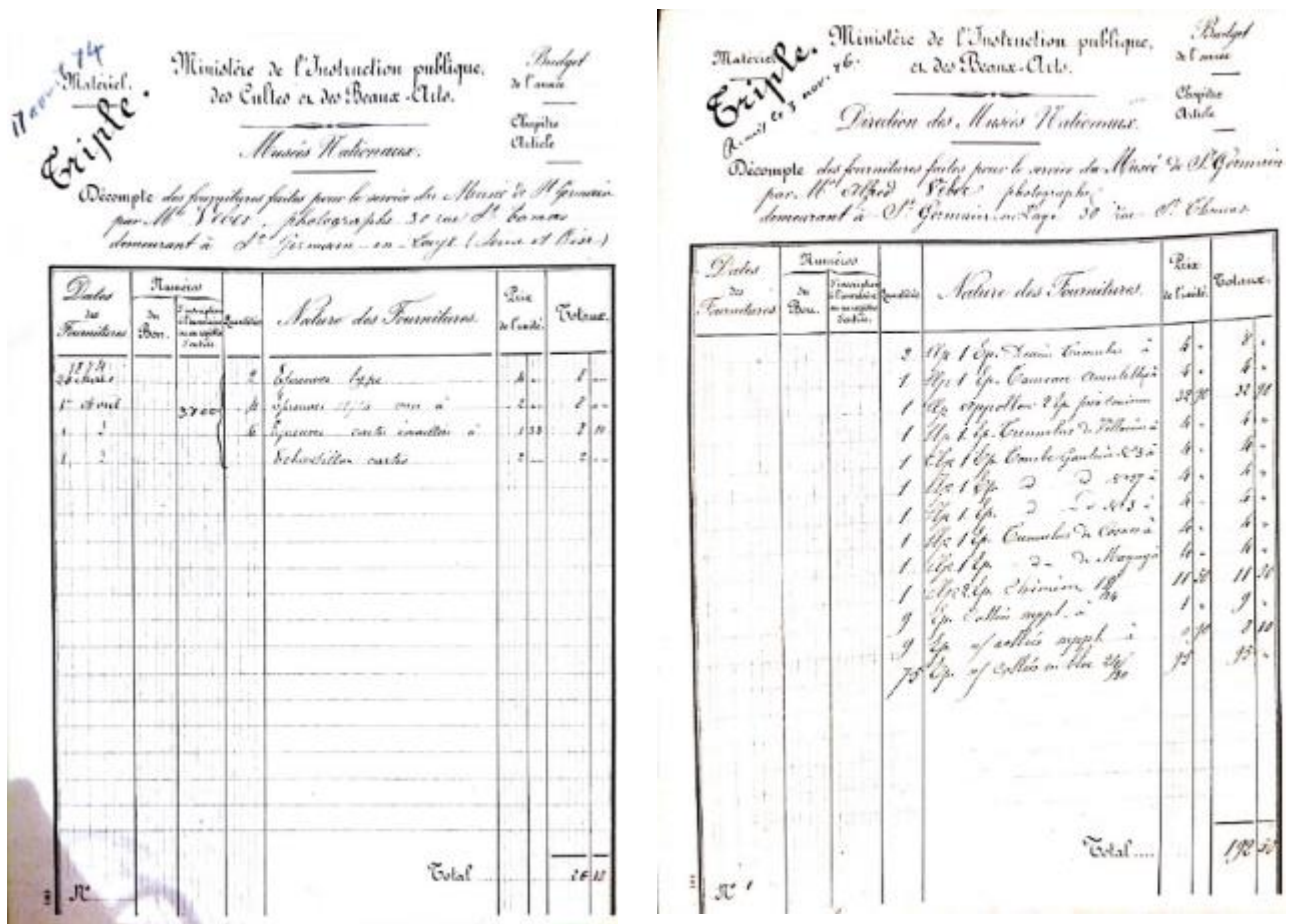 17 avril 74
Matériel.
Triple.
Ministère de l'Instruction publique,
des Cultes et des Beaux-Arts.
Musées Nationaux.
Budget
de l'année
Chapitre
Article
Décompte des fournitures faites pour le service du Musée de St Germain
par Mr Veber, photographe 30 rue St Thomas
demeurant à St Germain-en-Laye (Seine et Oise)
Dates
des
Fournitures
Numéros
du
Bon.
d'inscription
à l'inventaire
ou au registre
d'entrée.
Quantités
Nature des Fournitures.
Prix
de l'unité.
Totaux.
1874
26 Mars 2 Epreuves type 4 " 8 "
1er Avril 4 Epreuves à 2 " 8 "
6 Epreuves cartes émaillées à 8 10
Echantillon cartes 2 " 2 "
Total 26 10
N°
Matériel
Triple.
3 nov. 76.
Ministère de l'Instruction publique,
et des Beaux-Arts.
Direction des Musées Nationaux.
Budget
de l'année
Chapitre
Article
Décompte des fournitures faites pour le service du Musée de St Germain
par Mr Alfred Veber photographe
demeurant à St Germain-en-Laye 30 rue St Thomas
Dates
des
Fournitures
Numéros
du
Bon.
d'inscription
à l'inventaire
ou au registre
d'entrée.
Quantités
Nature des Fournitures.
Prix
de l'unité.
Totaux.
2 Nég 1 Ep. Tumulus à 4 " 8 "
1 Nég 1 Ep. à 4 " 4 "
1 Nég Appollon 2 Ep 32 90 32 90
1 Nég 1 Ep. Tumulus de à 4 " 4 "
1 Nég 1 Ep. Tombe Gauloise No 3 à 4 " 4 "
1 Nég 1 Ep. d d No 27 à 4 " 4 "
1 Nég 1 Ep. d d No 3 à 4 " 4 "
1 Nég 1 Ep. Tumulus de à 4 " 4 "
1 Nég 1 Ep. d de 4 " 4 "
1 Nég 2 Ep. 18/24 11 50 11 50
9 Ep. collées suppl. à 1 " 9 "
9 Ep. n/ collées suppl. à " 90 8 10
75 Ep. n/ collées en bloc 95 95 "
Total.... 192 50
N°